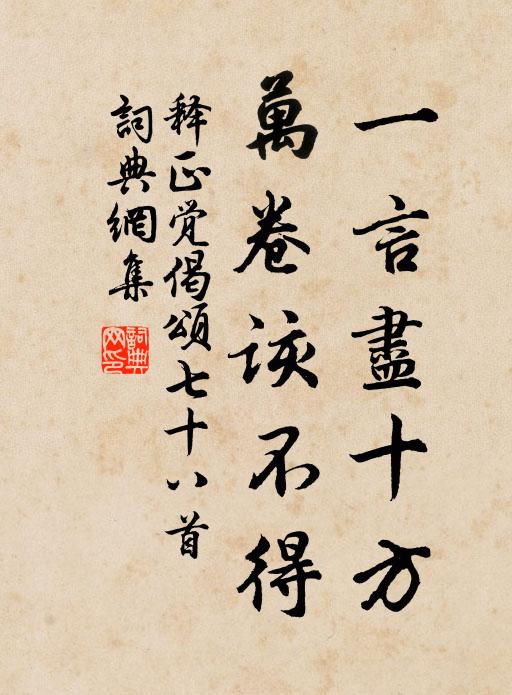 一言盡十方
萬卷該不得
释正覚偈頌七十八首
詞典網集
詞典网印